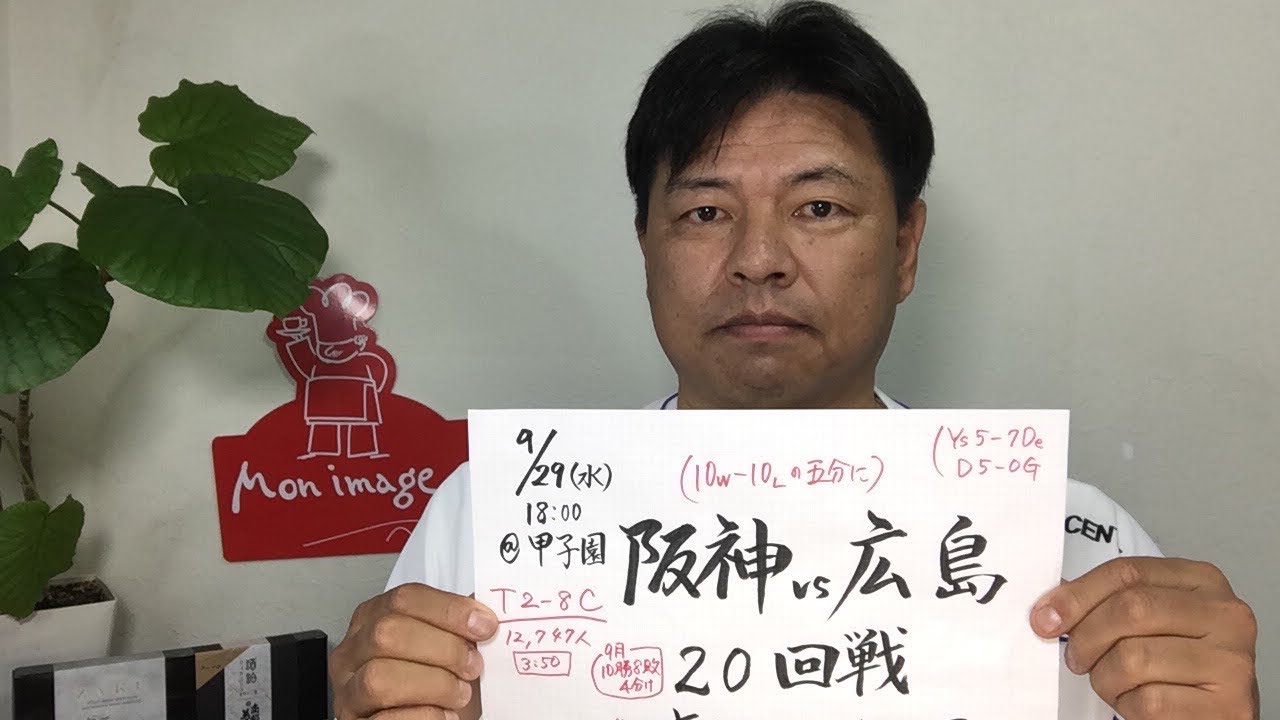 9/29(水)
18:00
@甲子園
(10W-10Lの五分に)
(Ys5-7De
D5-0G
阪神vs広島
T2-8C
12,747人
3:50
9月
10勝8敗
4分け
20回戦
Mon image
CENT